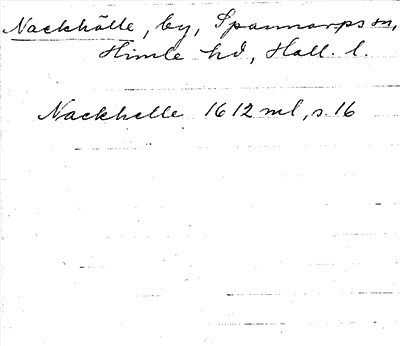 Nackhälle, by, Spannarps sn,
Himle hd, Hall. l.
Nackhelle 1612 ml, s. 16